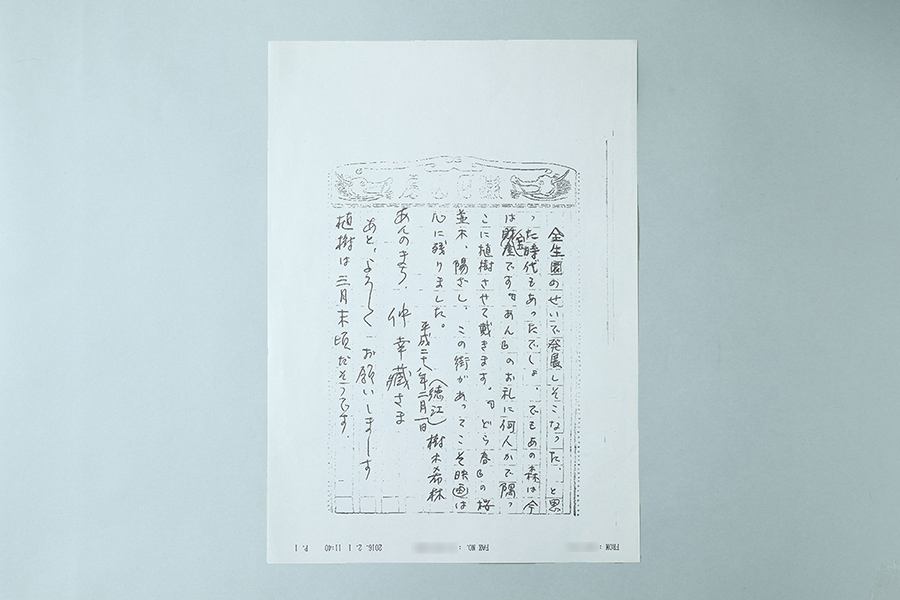 全生園のせいで発展しそこなった、と思
った時代もあったでしょ、でもあの森は今
は財産です『あん』のお礼に何人かで隅っ
こに植樹させて戴きます。『どら春』の桜
並木、陽ざし、この街があってこそ映画は
心に残りました。
平成二十八年二月一日
(徳江)樹木希林
あんのまち、仲幸蔵さま
あと、よろしくお願いしまーす
植樹は三月末頃だそうです。
FROM :
FAX NO. :
2016. 2. 1 11:40
P. 1